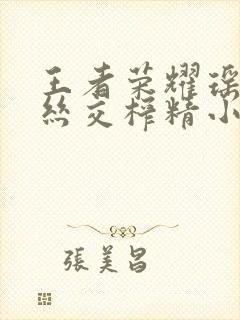 王者荣耀瑶
丝交榨精小
張美昌